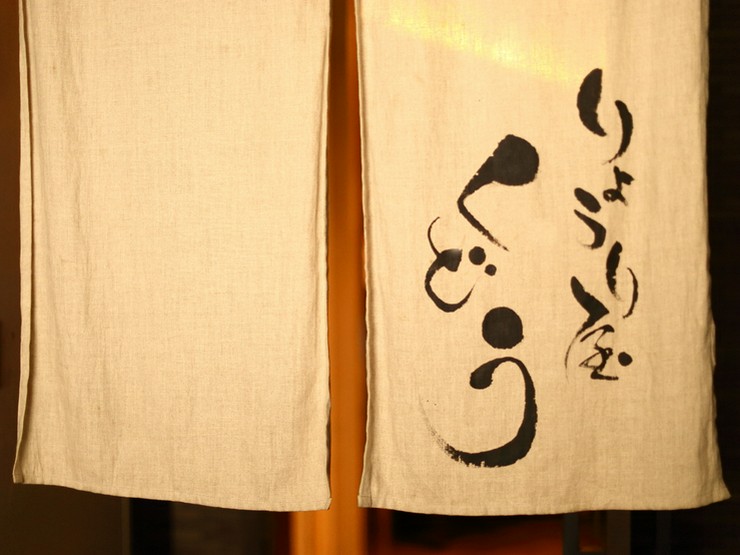 りょうり屋
くどう